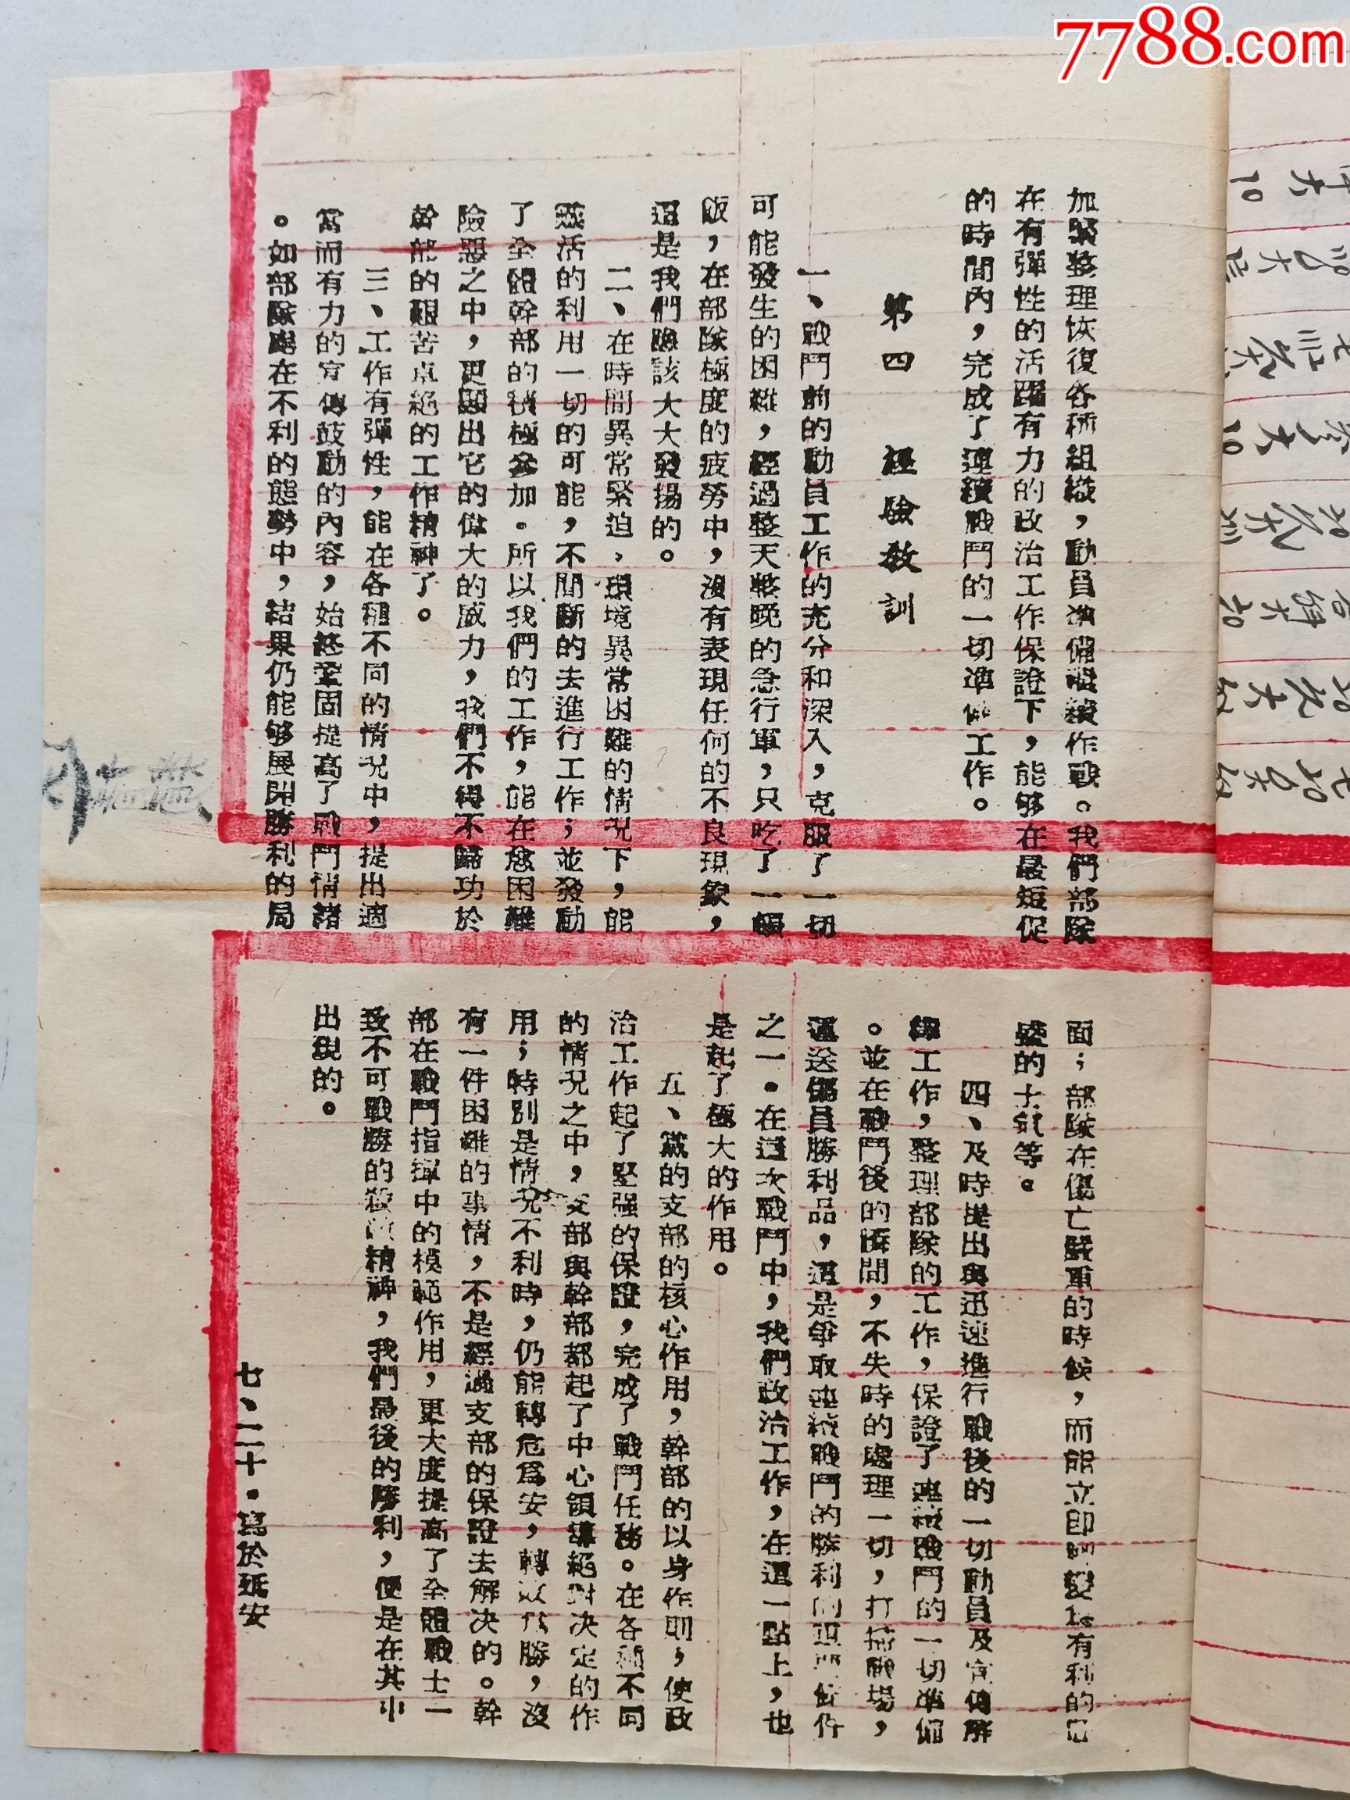 7788.com
加緊整理恢復各種組織，動員準備繼續作戰。我們部隊
在有彈性的活躍有力的政治工作保證下，能够在最短促
的時間內，完成了連續戰鬥的一切準備工作。
第四 經驗教訓
一、戰鬥前的動員工作的充分和深入，克服了一切
可能發生的困難，經過整天整晚的急行軍，只吃了一頓
飯，在部隊極度的疲勞中，沒有表現任何的不良現象，
這是我們應該大大發揚的。
二、在時間異常緊迫，環境異常困難的情況下，能
靈活的利用一切的可能，不間斷的去進行工作；並發動
了全體幹部的積極參加。所以我們的工作，能在愈困難
險惡之中，更顯出它的偉大的威力，我們不得不歸功於
幹部的艱苦卓絕的工作精神了。
三、工作有彈性，能在各種不同的情況中，提出適
當而有力的宣傳鼓動的內容，始終鞏固提高了戰鬥情緒
。如部隊處在不利的態勢中，結果仍能够展開勝利的局
面；部隊在傷亡嚴重的時候，而能立即轉變為有利的
盛的士氣等。
四、及時提出與迅速進行戰後的一切動員及宣傳解
釋工作，整理部隊的工作，保證了連續戰鬥的一切準備
。並在戰鬥後的瞬間，不失時的處理一切，打掃戰場，
運送傷員勝利品，這是爭取連續戰鬥的勝利的重要條件
之一。在這次戰鬥中，我們政治工作，在這一點上，也
是起了極大的作用。
五、黨的支部的核心作用，幹部的以身作則，使政
治工作起了堅强的保證，完成了戰鬥任務。在各種不同
的情況之中，支部與幹部都起了中心領導絕對決定的作
用；特別是情況不利時，仍能轉危為安，轉敗為勝，沒
有一件困難的事情，不是經過支部的保證去解決的。幹
部在戰鬥指揮中的模範作用，更大度提高了全體戰士一
致不可戰勝的殺敵精神，我們最後的勝利，便是在其中
出現的。
七、二十。寫於延安